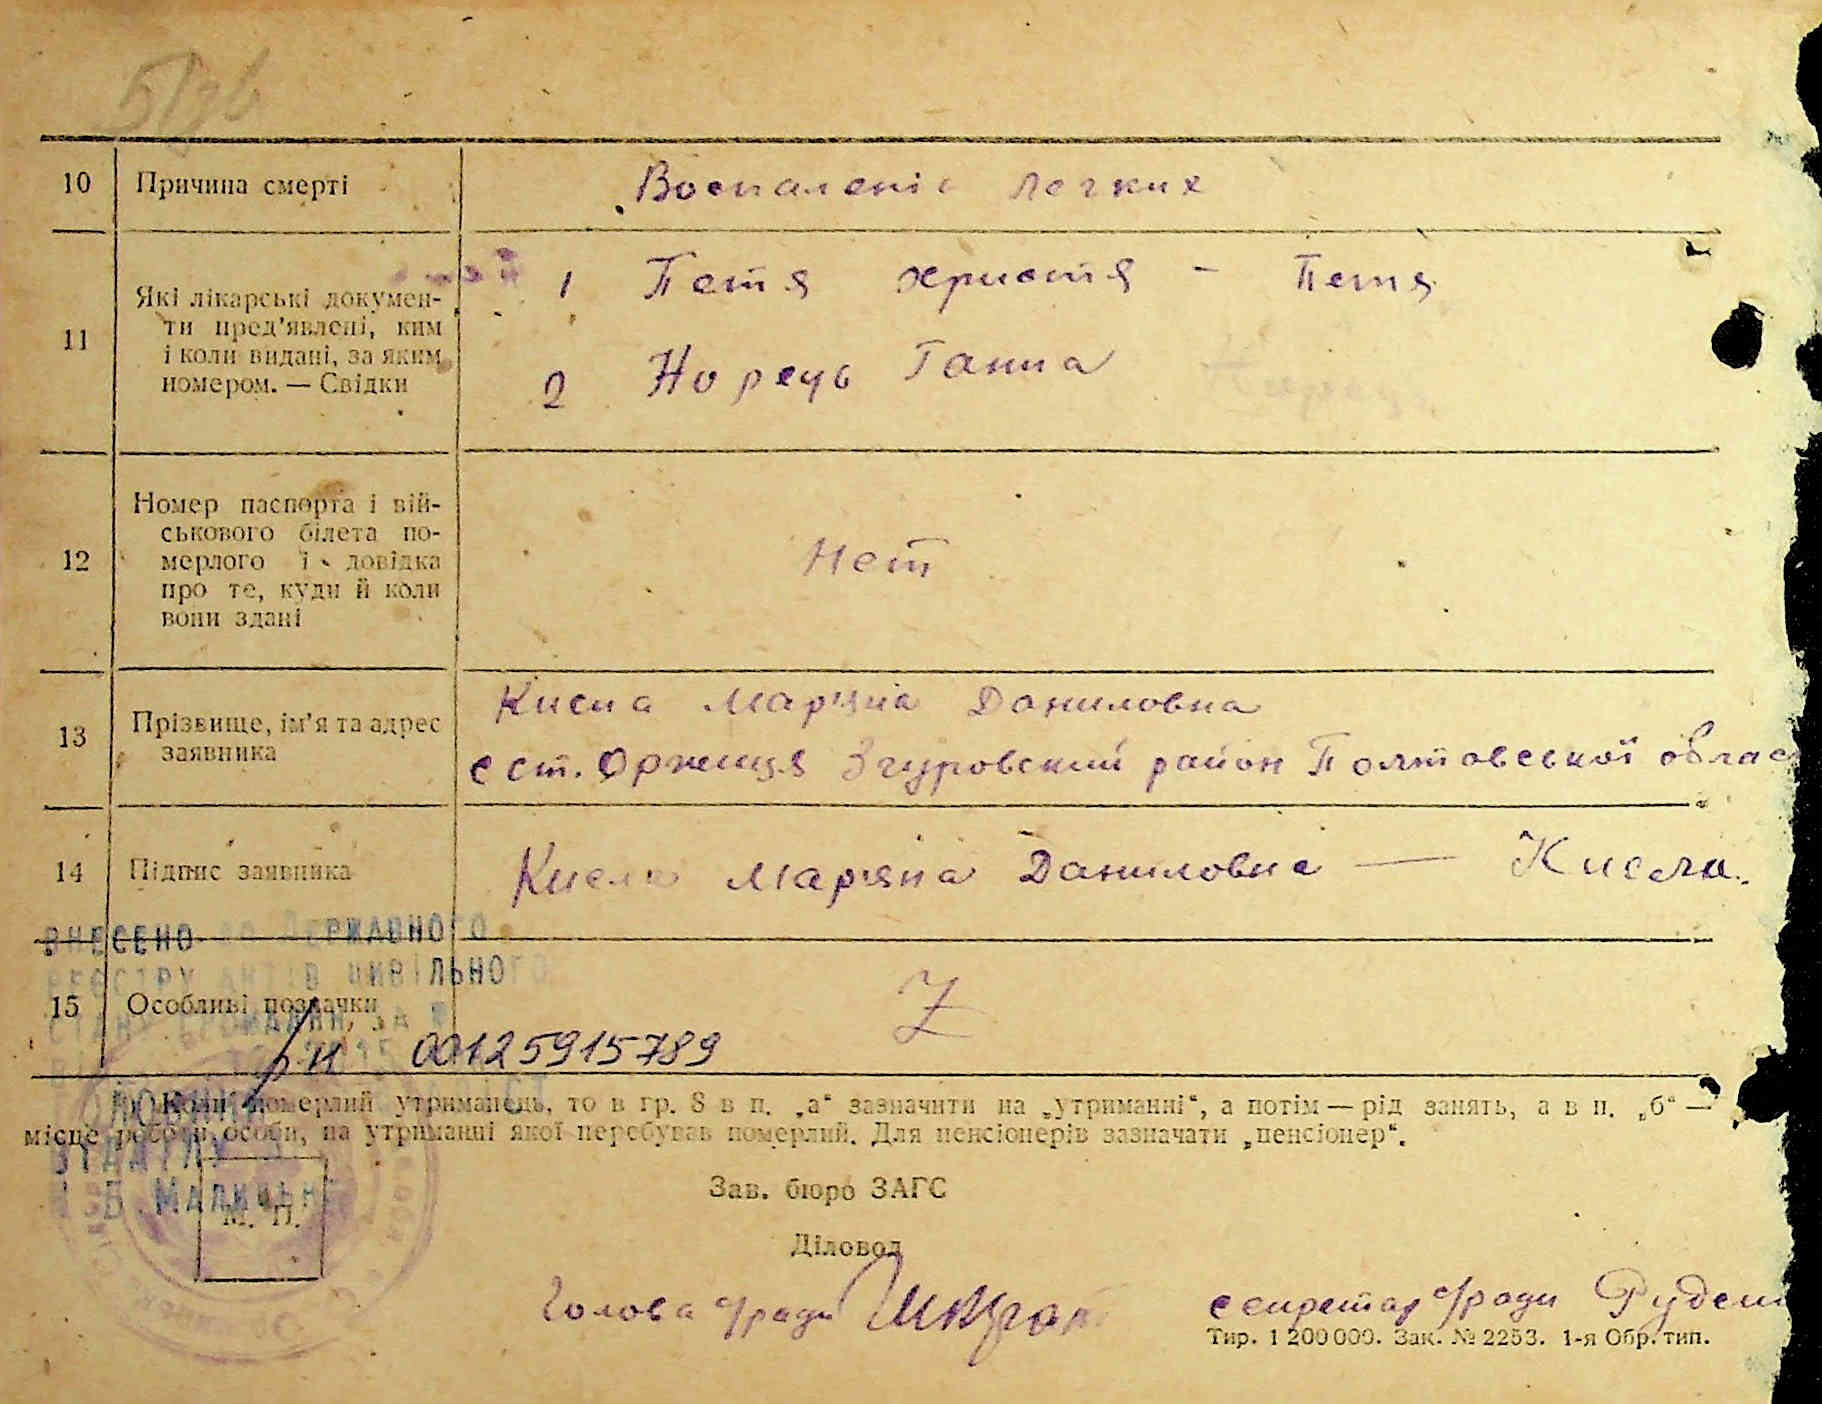 10 Причина смерті Воспаленіе легких
11 Які лікарські докумен-
ти пред'явлені, ким
і коли видані, за яким
номером. — Свідки
1 Петя Христя – Петя
2 Норець Ганна
12 Номер паспорта і вій-
ськового білета по-
мерлого і довідка
про те, куди й коли
вони здані
Нет
13 Прізвище, ім'я та адрес
заявника
Кисла Мар'яна Даниловна
с ст. Оржиця Згуровский район Полтавської облас
14 Підпис заявника Кисла Мар'яна Даниловна — Кисла.
ВНЕСЕНО ДО ДЕРЖАВНОГО
РЕЄСТРУ АКТІВ ЦИВІЛЬНОГО
СТАНУ ГРОМАДЯН ЗА №
15 Особливі позначки Z
р/н 00125915789
Коли померлий утриманець, то в гр. 8 в п. „а“ зазначити на „утриманні“, а потім — рід занять, а в п. „б“ —
місце роботи особи, на утриманні якої перебував померлий. Для пенсіонерів зазначати „пенсіонер“.
М. П.
Зав. бюро ЗАГС
Діловод
Голова с/ради
секретар с/ради Руденк
Тир. 1 200 000. Зак. № 2253. 1-я Обр. тип.